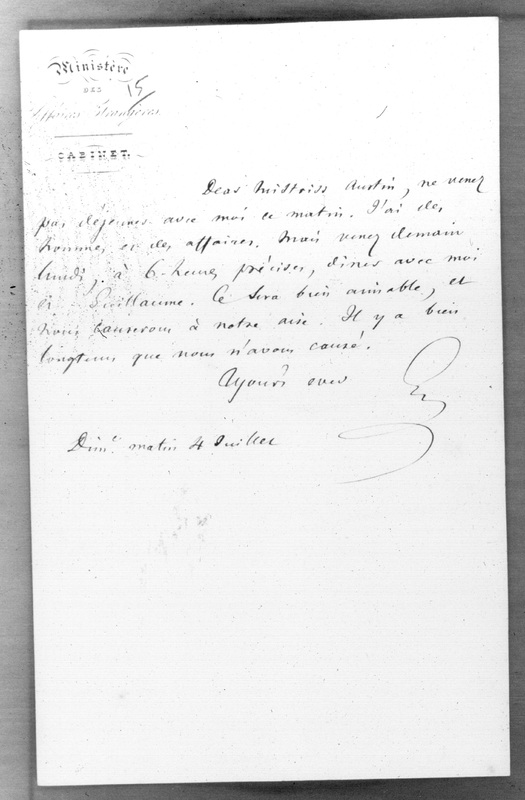 Ministère
DES
15
Affaires Étrangères
CABINET.
Dear Mistriss Austin, ne venez
pas déjeuner avec moi ce matin. J'ai des
hommes et des affaires. Mais venez demain
lundi, à 6 heures précises, diner avec moi
et Guillaume. Ce sera bien aimable, et
nous causerons à notre aise. Il y a bien
longtems que nous n'avons causé.
Yours ever
Dim. matin 4 Juillet